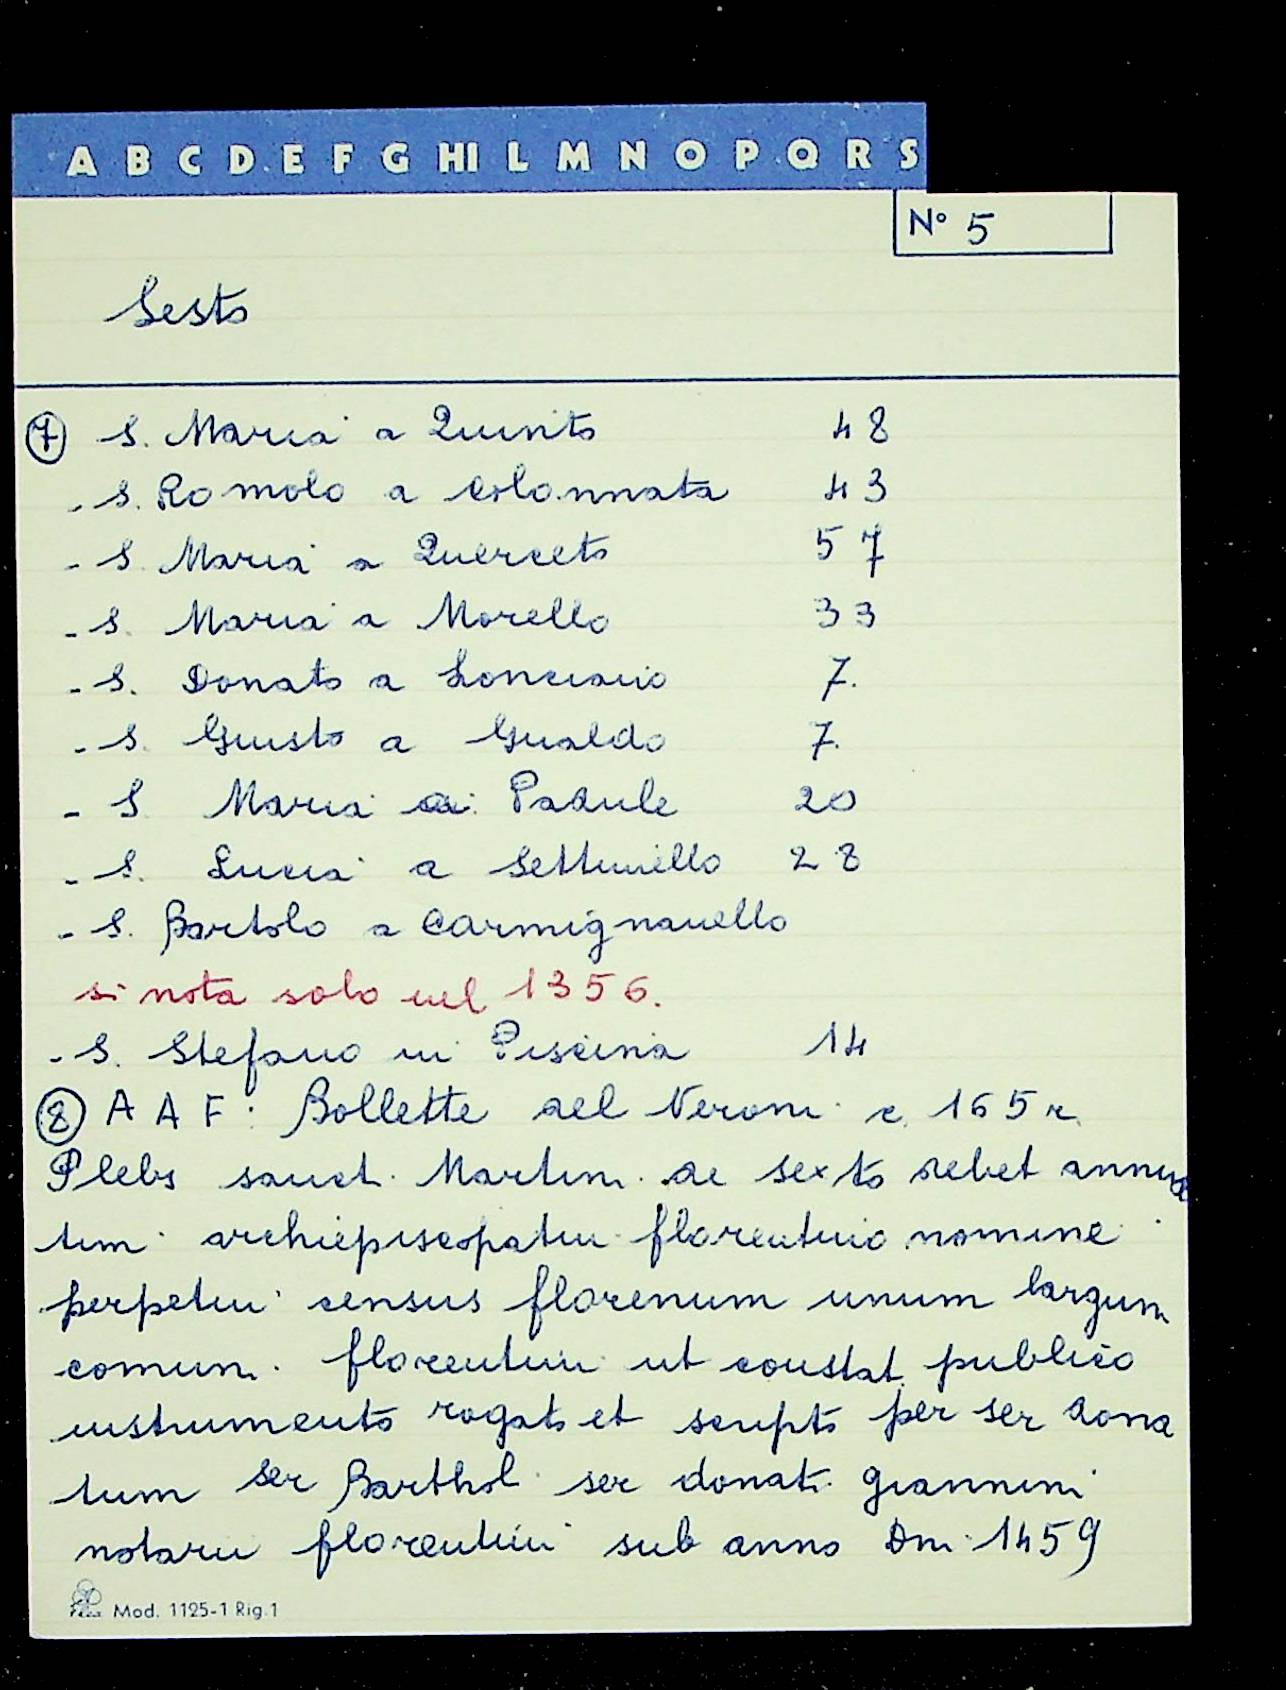 A B C D E F G HI L M N O P Q R S
N° 5
Sesto
⑦ S. Maria a Quinto 48
- S. Romolo a Colonnata 43
- S. Maria a Querceto 57
- S. Maria a Morello 33
- S. Donato a Lonciano 7.
- S. Giusto a Gualdo 7.
- S Maria a Padule 20
- S. Lucia a Settimello 28
- S. Bartolo a Carmignanello
si nota solo nel 1356.
- S. Stefano in Piscina 14
⑧ A A F: Bollette del Neroni c. 165 r.
Plebs sanct. Martini de sexto debet annua
tim archiepiscopatui florentino nomine
perpetui census florenum unum largum
comun. florentini ut constat publico
instrumento rogato et scripto per ser dona
tum ser Barthol. ser donati giannini
notarii florentini sub anno Dni 1459
Mod. 1125-1 Rig.1